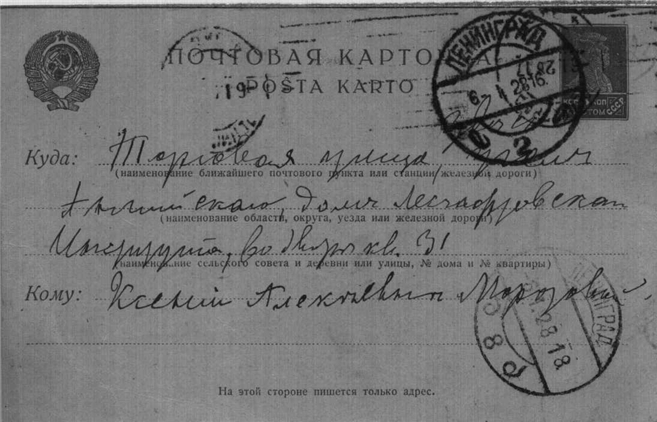 ПОЧТОВАЯ КАРТОЧКА
POŜTA KARTO
ЛЕНИНГРАД
Куда: Торговая улица, угол
(наименование ближайшего почтового пункта или станции железной дороги)
Английского, домъ Лесгафтовскаго
(наименование области, округа, уезда или железной дороги)
Института, во дворе кв. 31
(наименование сельского совета и деревни или улицы, № дома и № квартиры)
Кому: Ксении Алексеевны Морозовой
28 18
На этой стороне пишется только адрес.